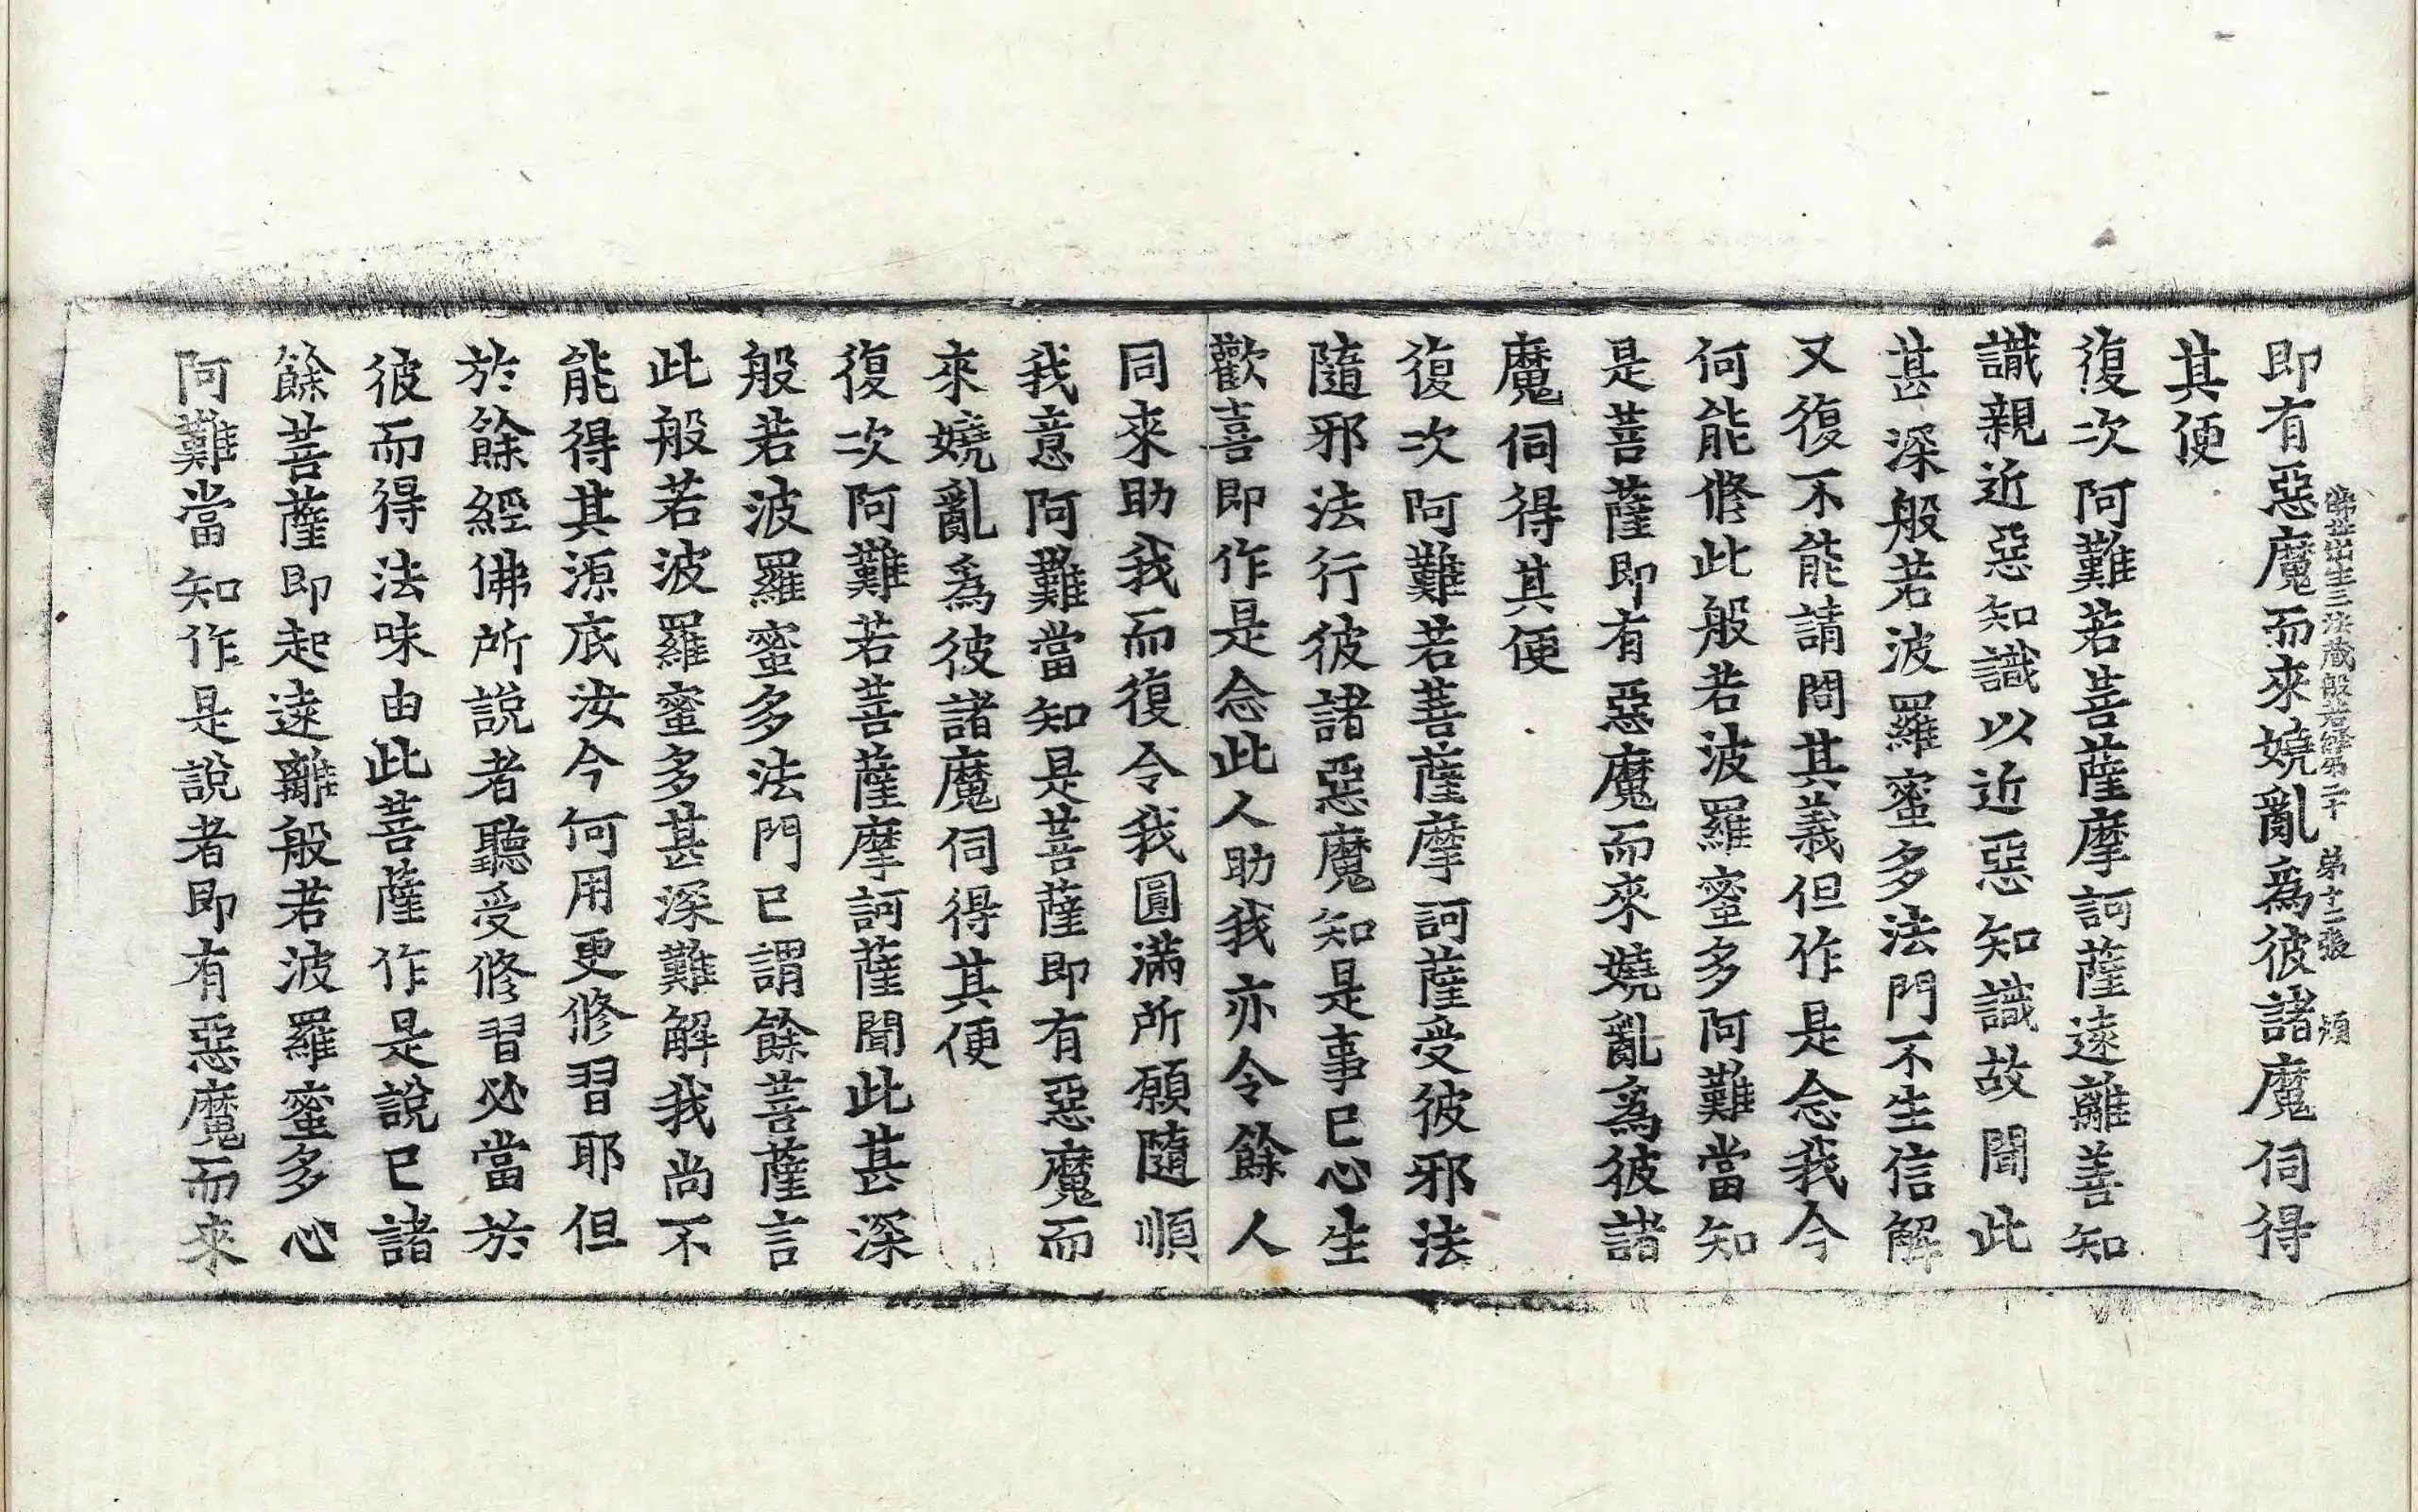 佛母出生三法藏般若經第二十 第十二張 傾
即有惡魔而來嬈亂為彼諸魔伺得
其便
復次阿難若菩薩摩訶薩遠離善知
識親近惡知識以近惡知識故聞此
甚深般若波羅蜜多法門不生信解
又復不能請問其義但作是念我今
何能修此般若波羅蜜多阿難當知
是菩薩即有惡魔而來嬈亂為彼諸
魔伺得其便
復次阿難若菩薩摩訶薩受彼邪法
隨邪法行彼諸惡魔知是事已心生
歡喜即作是念此人助我亦令餘人
同來助我而復令我圓滿所願隨順
我意阿難當知是菩薩即有惡魔而
來嬈亂為彼諸魔伺得其便
復次阿難若菩薩摩訶薩聞此甚深
般若波羅蜜多法門已謂餘菩薩言
此般若波羅蜜多甚深難解我尚不
能得其源底汝今何用更修習耶但
於餘經佛所說者聽受修習必當於
彼而得法味由此菩薩作是說已諸
餘菩薩即起遠離般若波羅蜜多心
阿難當知作是說者即有惡魔而來